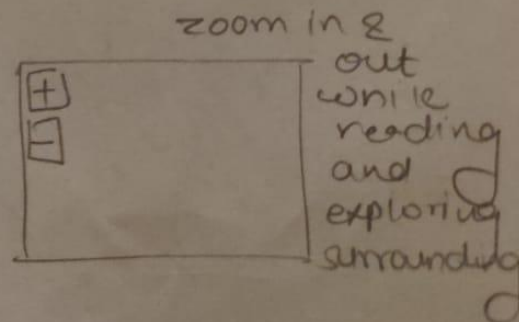 zoom in &
out
while
reading
and
exploring
surrounding
+
-